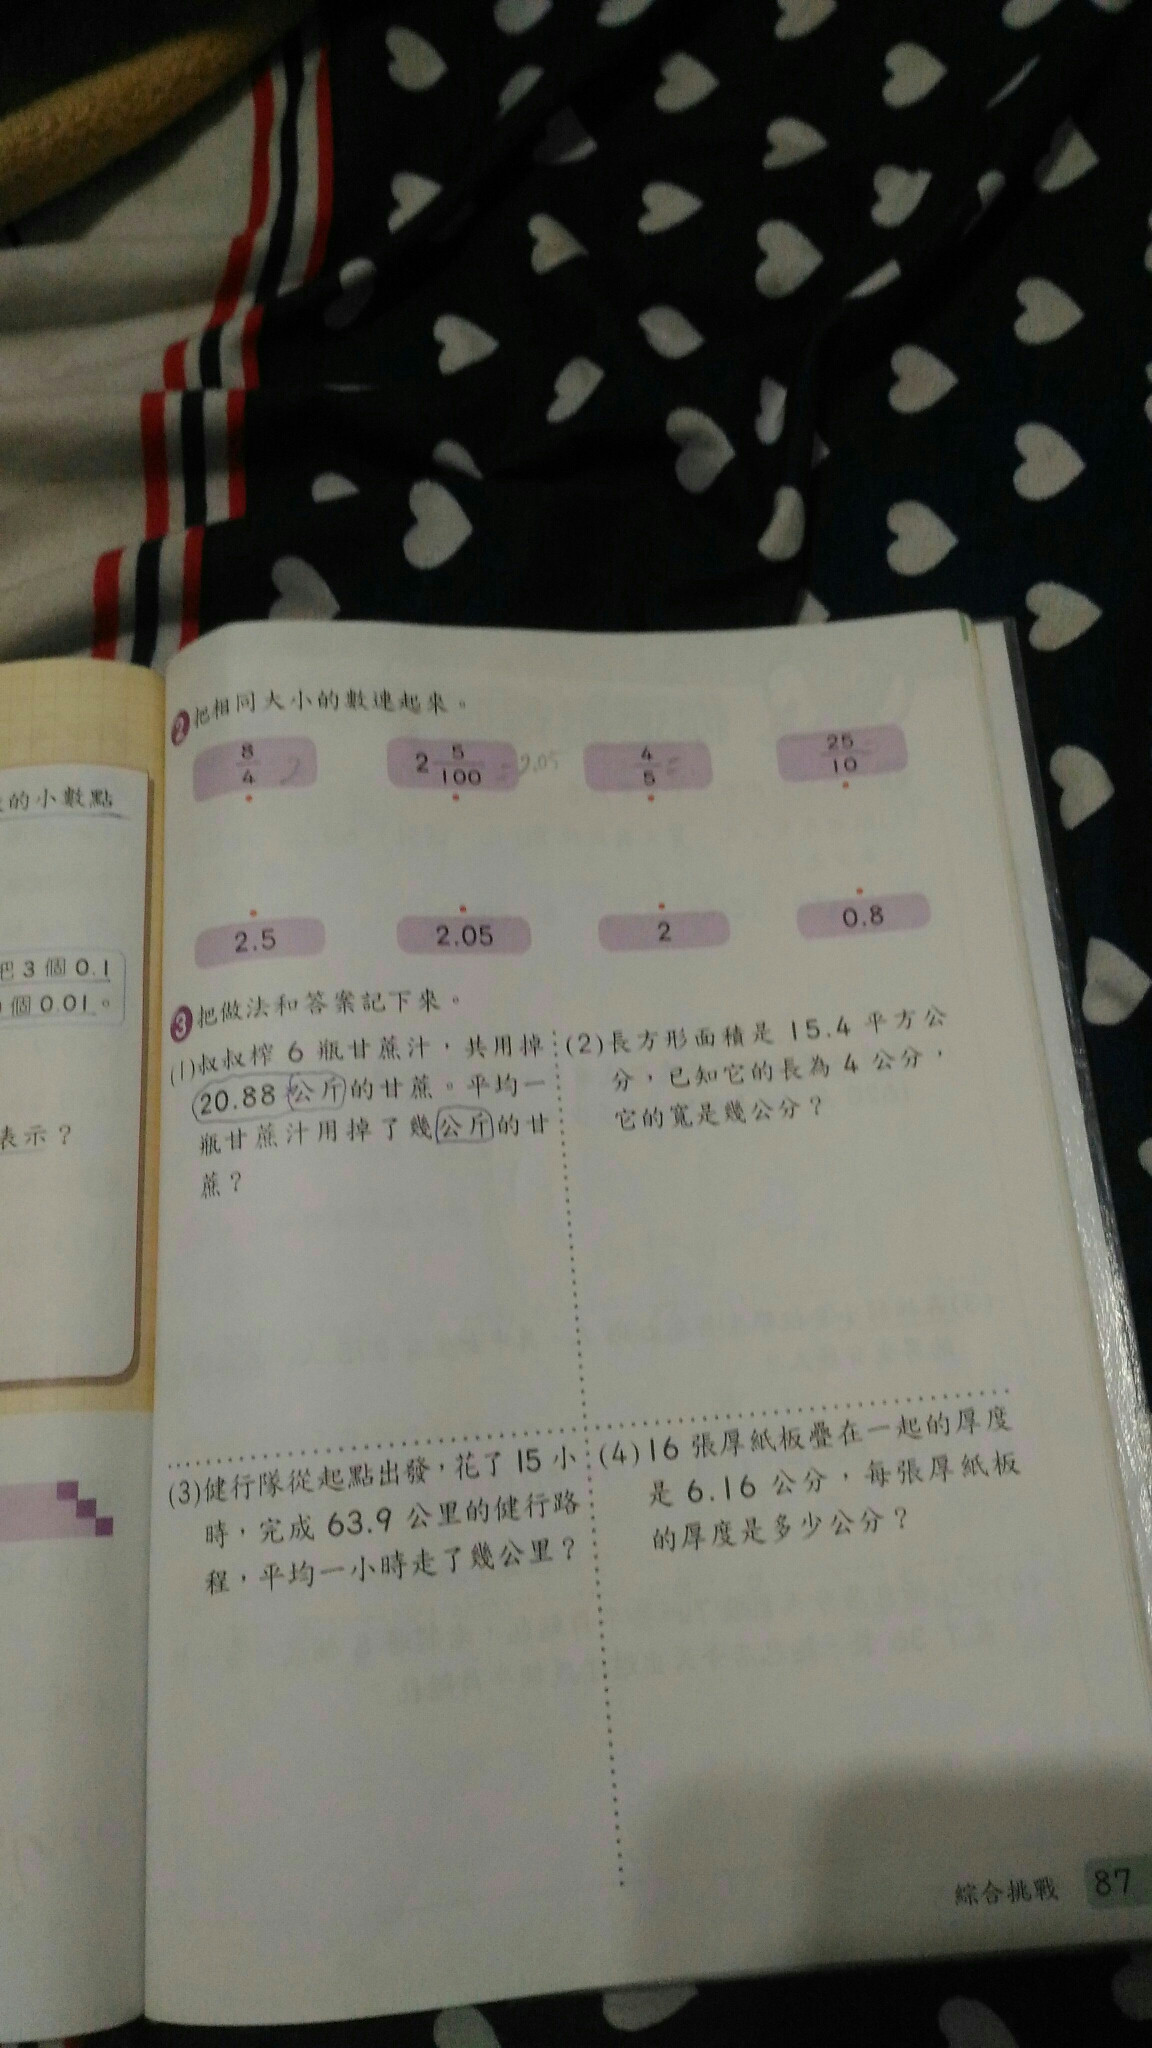 的小數點
把3個0.1
個0.01。
表示？
❷把相同大小的數連起來。
8/4 2
2 5/100 =2.05
4/5 =
25/10 =
2.5
2.05
2
0.8
❸把做法和答案記下來。
(1)叔叔榨 6 瓶甘蔗汁，共用掉
20.88 公斤的甘蔗。平均一
瓶甘蔗汁用掉了幾公斤的甘
蔗？
(2)長方形面積是 15.4 平方公
分，已知它的長為 4 公分，
它的寬是幾公分？
(3)健行隊從起點出發，花了 15 小
時，完成 63.9 公里的健行路
程，平均一小時走了幾公里？
(4)16 張厚紙板疊在一起的厚度
是 6.16 公分，每張厚紙板
的厚度是多少公分？
綜合挑戰 87